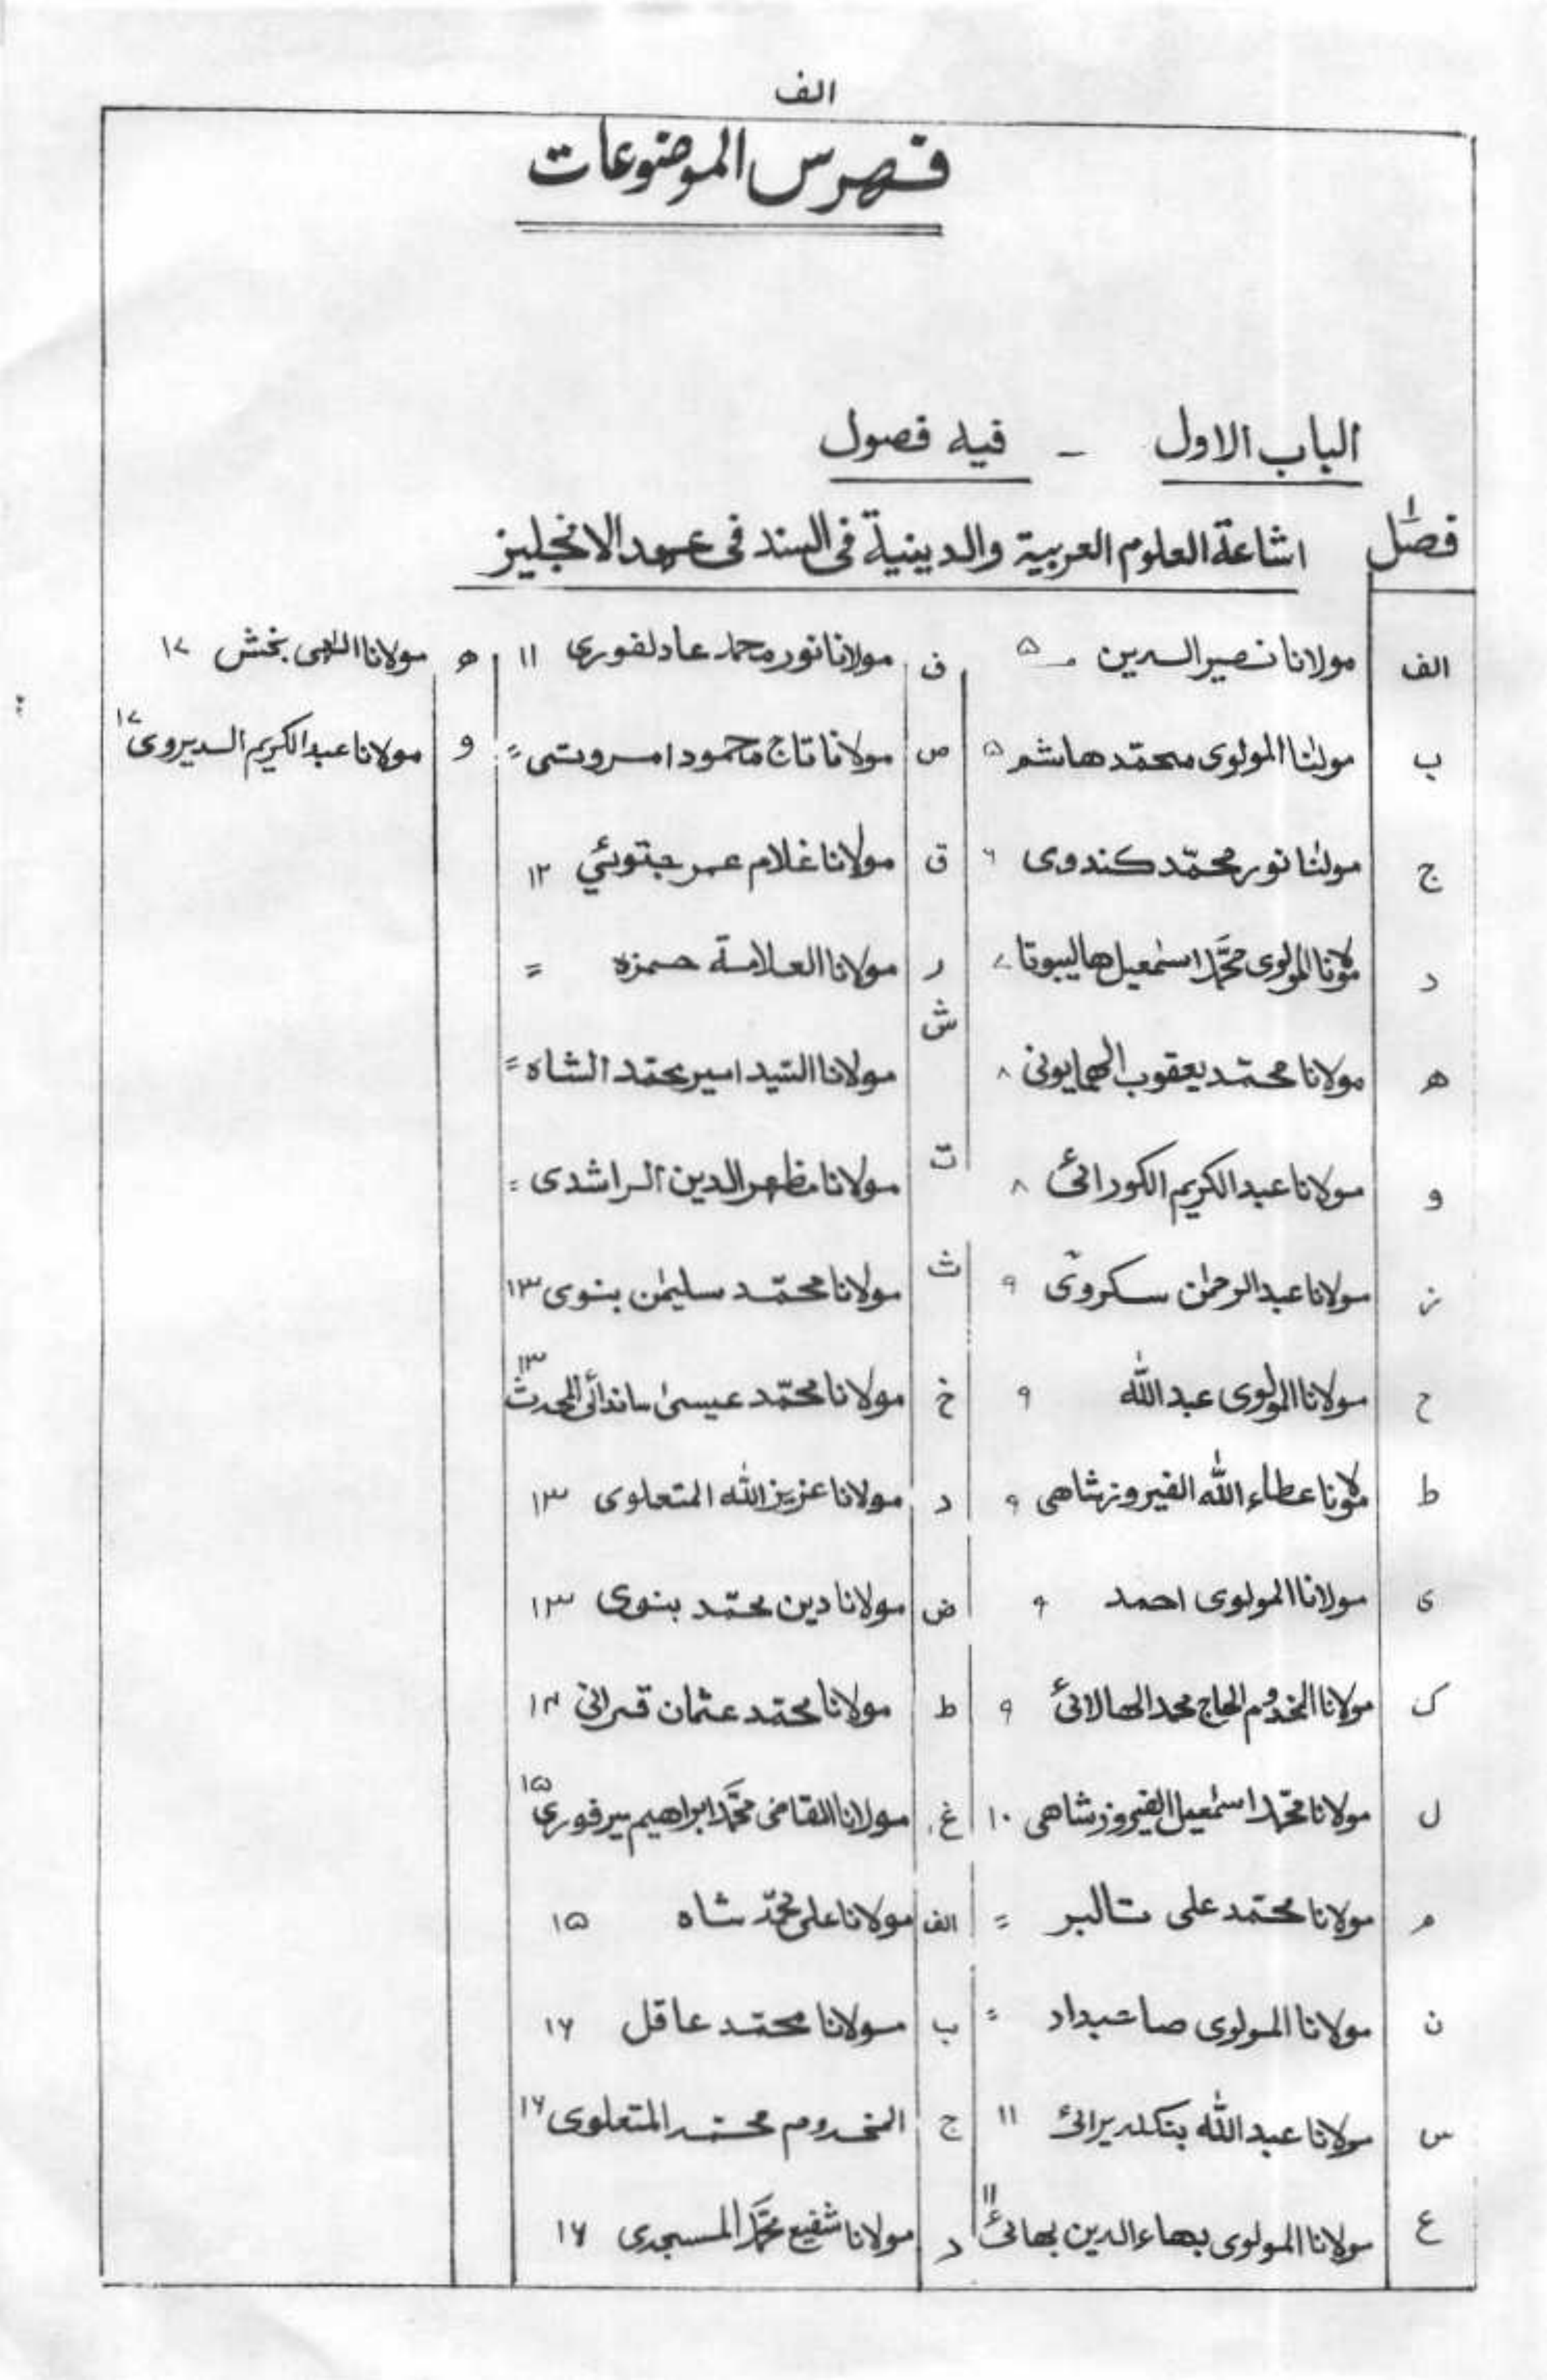 الف
فهرس الموضوعات
الباب الاول - فيه فصول
فصل ١ اشاعة العلوم العربية والدينية فی السند فی عهد الانجليز
الف مولانا نصير الدين ۵
ب مولٰنا المولوی محمّد هاشم ۵
ج مولٰنا نور محمّد كندوی ۶
د مولانا المولوی محمَّد اسمٰعيل هاليپوتا ۷
ه مولانا محمّد يعقوب الهمايونی ۸
و مولانا عبد الكريم الكورائی ۸
ز مولانا عبد الرحمٰن سكروی ۹
ح مولانا المولوی عبد الله ۹
ط مولانا عطاء الله الفيروزشاهی ۹
ی مولانا المولوی احمد ۹
ک مولانا المخدوم الحاج محمد الهالائی ۹
ل مولانا محمّد اسمٰعيل الفيروزشاهی ۱۰
م مولانا محمّد علی تالبر =
ن مولانا المولوی صاحبداد =
س مولانا عبد الله ۱۱
ع مولانا المولوی بهاء الدين بهائی ۱۱
ف مولانا نور محمد عادلفوری ۱۱
ص مولانا تاج محمود امروتی =
ق مولانا غلام عمر جتوئي ۱۲
ر مولانا العلامة حمزه =
ش مولانا السّيد امير محمّد الشاه =
ت مولانا مظهر الدين الراشدی =
ث مولانا محمّد سليمٰن بنوی ۱۳
خ مولانا محمّد عيسیٰ ساندائی المحدث ۱۳
د مولانا عزيز الله المتعلوی ۱۳
ض مولانا دين محمّد بنوی ۱۳
ط مولانا محمّد عثمان قرانی ۱۴
غ مولانا القاضی محمَّد ابراهيم ميرفوری ۱۵
الف مولانا علی محمّد شاه ۱۵
ب مولانا محمّد عاقل ۱۶
ج المخدوم محمّد المتعلوی ۱۶
د مولانا شفيع محمَّد المسجدی ۱۶
ه مولانا الٰهی بخش ۱۷
و مولانا عبد الكريم الديروی ۱۷